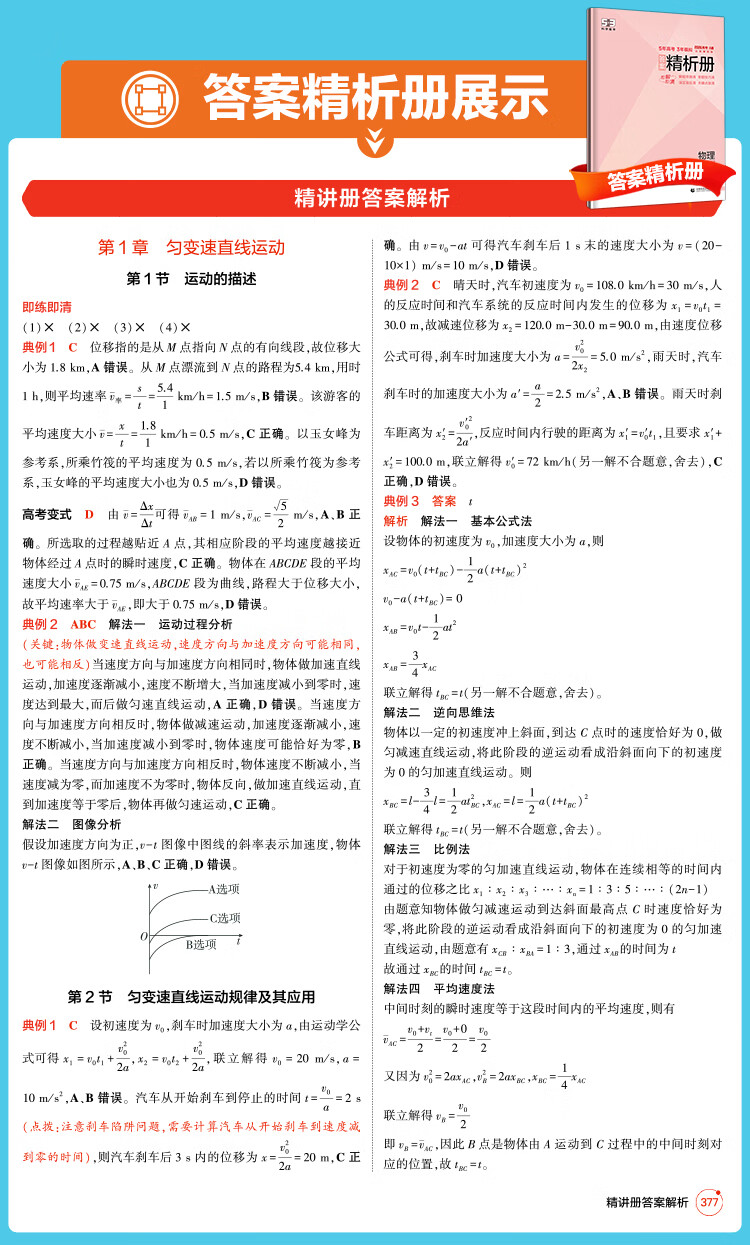 答案精析册展示
53
5年高考 3年模拟
精析册
物理
答案精析册
精讲册答案解析
第1章 匀变速直线运动
第1节 运动的描述
即练即清
(1)× (2)× (3)× (4)×
典例1 C 位移指的是从M点指向N点的有向线段,故位移大
小为1.8 km,A错误。从M点漂流到N点的路程为5.4 km,用时
1 h,则平均速率v̄率=s/t=5.4/1 km/h=1.5 m/s,B错误。该游客的
平均速度大小v̄=x/t=1.8/1 km/h=0.5 m/s,C正确。以玉女峰为
参考系,所乘竹筏的平均速度为0.5 m/s,若以所乘竹筏为参考
系,玉女峰的平均速度大小也为0.5 m/s,D错误。
高考变式 D 由v̄=Δx/Δt可得v̄AB=1 m/s,v̄AC=√5/2 m/s,A、B正
确。所选取的过程越贴近A点,其相应阶段的平均速度越接近
物体经过A点时的瞬时速度,C正确。物体在ABCDE段的平均
速度大小v̄AE=0.75 m/s,ABCDE段为曲线,路程大于位移大小,
故平均速率大于v̄AE,即大于0.75 m/s,D错误。
典例2 ABC 解法一 运动过程分析
(关键:物体做变速直线运动,速度方向与加速度方向可能相同,
也可能相反)当速度方向与加速度方向相同时,物体做加速直线
运动,加速度逐渐减小,速度不断增大,当加速度减小到零时,速
度达到最大,而后做匀速直线运动,A正确,D错误。当速度方
向与加速度方向相反时,物体做减速运动,加速度逐渐减小,速
度不断减小,当加速度减小到零时,物体速度可能恰好为零,B
正确。当速度方向与加速度方向相反时,物体速度不断减小,当
速度减为零,而加速度不为零时,物体反向,做加速直线运动,直
到加速度等于零后,物体再做匀速运动,C正确。
解法二 图像分析
假设加速度方向为正,v-t图像中图线的斜率表示加速度,物体
v-t图像如图所示,A、B、C正确,D错误。
v
A选项
C选项
O
B选项
t
第2节 匀变速直线运动规律及其应用
典例1 C 设初速度为v₀,刹车时加速度大小为a,由运动学公
式可得x₁=v₀t₁+v₀²/2a,x₂=v₀t₂+v₀²/2a,联立解得v₀=20 m/s,a=
10 m/s²,A、B错误。汽车从开始刹车到停止的时间t=v₀/a=2 s
(点拨:注意刹车陷阱问题,需要计算汽车从开始刹车到速度减
到零的时间),则汽车刹车后3 s内的位移为x=v₀²/2a=20 m,C正
确。由v=v₀-at可得汽车刹车后1 s末的速度大小为v=(20-
10×1) m/s=10 m/s,D错误。
典例2 C 晴天时,汽车初速度为v₀=108.0 km/h=30 m/s,人
的反应时间和汽车系统的反应时间内发生的位移为x₁=v₀t₁=
30.0 m,故减速位移为x₂=120.0 m-30.0 m=90.0 m,由速度位移
公式可得,刹车时加速度大小为a=v₀²/2x₂=5.0 m/s²,雨天时,汽车
刹车时的加速度大小为a′=a/2=2.5 m/s²,A、B错误。雨天时刹
车距离为x₂′=v₀′²/2a′,反应时间内行驶的距离为x₁′=v₀′t₁,且要求x₁′+
x₂′=100.0 m,联立解得v₀′=72 km/h(另一解不合题意,舍去),C
正确,D错误。
典例3 答案 t
解析 解法一 基本公式法
设物体的初速度为v₀,加速度大小为a,则
xAC=v₀(t+tBC)-1/2a(t+tBC)²
v₀-a(t+tBC)=0
xAB=v₀t-1/2at²
xAB=3/4xAC
联立解得tBC=t(另一解不合题意,舍去)。
解法二 逆向思维法
物体以一定的初速度冲上斜面,到达C点时的速度恰好为0,做
匀减速直线运动,将此阶段的逆运动看成沿斜面向下的初速度
为0的匀加速直线运动。则
xBC=l-3/4l=1/2atBC²,xAC=l=1/2a(t+tBC)²
联立解得tBC=t(另一解不合题意,舍去)。
解法三 比例法
对于初速度为零的匀加速直线运动,物体在连续相等的时间内
通过的位移之比x₁∶x₂∶x₃∶⋯∶xₙ=1∶3∶5∶⋯∶(2n-1)
由题意知物体做匀减速运动到达斜面最高点C时速度恰好为
零,将此阶段的逆运动看成沿斜面向下的初速度为0的匀加速
直线运动,由题意有xCB∶xBA=1∶3,通过xAB的时间为t
故通过xBC的时间tBC=t。
解法四 平均速度法
中间时刻的瞬时速度等于这段时间内的平均速度,则有
v̄AC=(v₀+vt)/2=(v₀+0)/2=v₀/2
又因为v₀²=2axAC,vB²=2axBC,xBC=1/4xAC
联立解得vB=v₀/2
即vB=v̄AC,因此B点是物体由A运动到C过程中的中间时刻对
应的位置,故tBC=t。
精讲册答案解析 377